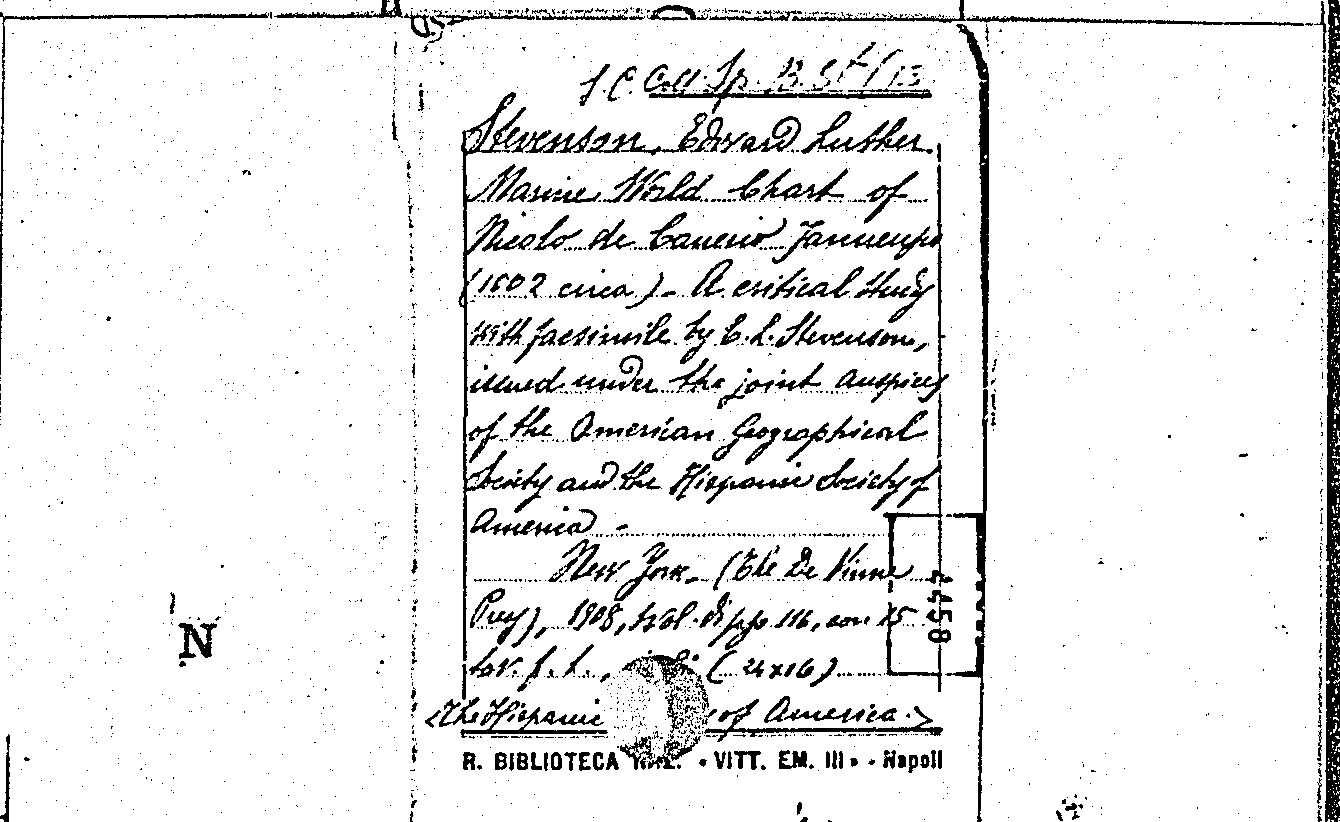 S. C. Coll. Sp. B. 54 (13
Stevenson, Edward Luther.
Marine World Chart of
Nicolo de Canerio Januensis
(1502 circa) - A critical study
with facsimile by E. L. Stevenson,
issued under the joint auspices
of the American Geographical
Society and the Hispanic Society of
America -
New York - (The De Vinne
Press), 1908, vol. di pp. 116, con 15
tav. f. t., (24x16)
<The Hispanic of America.>
R. BIBLIOTECA NAZ. • VITT. EM. III • - Napoli
4458
N